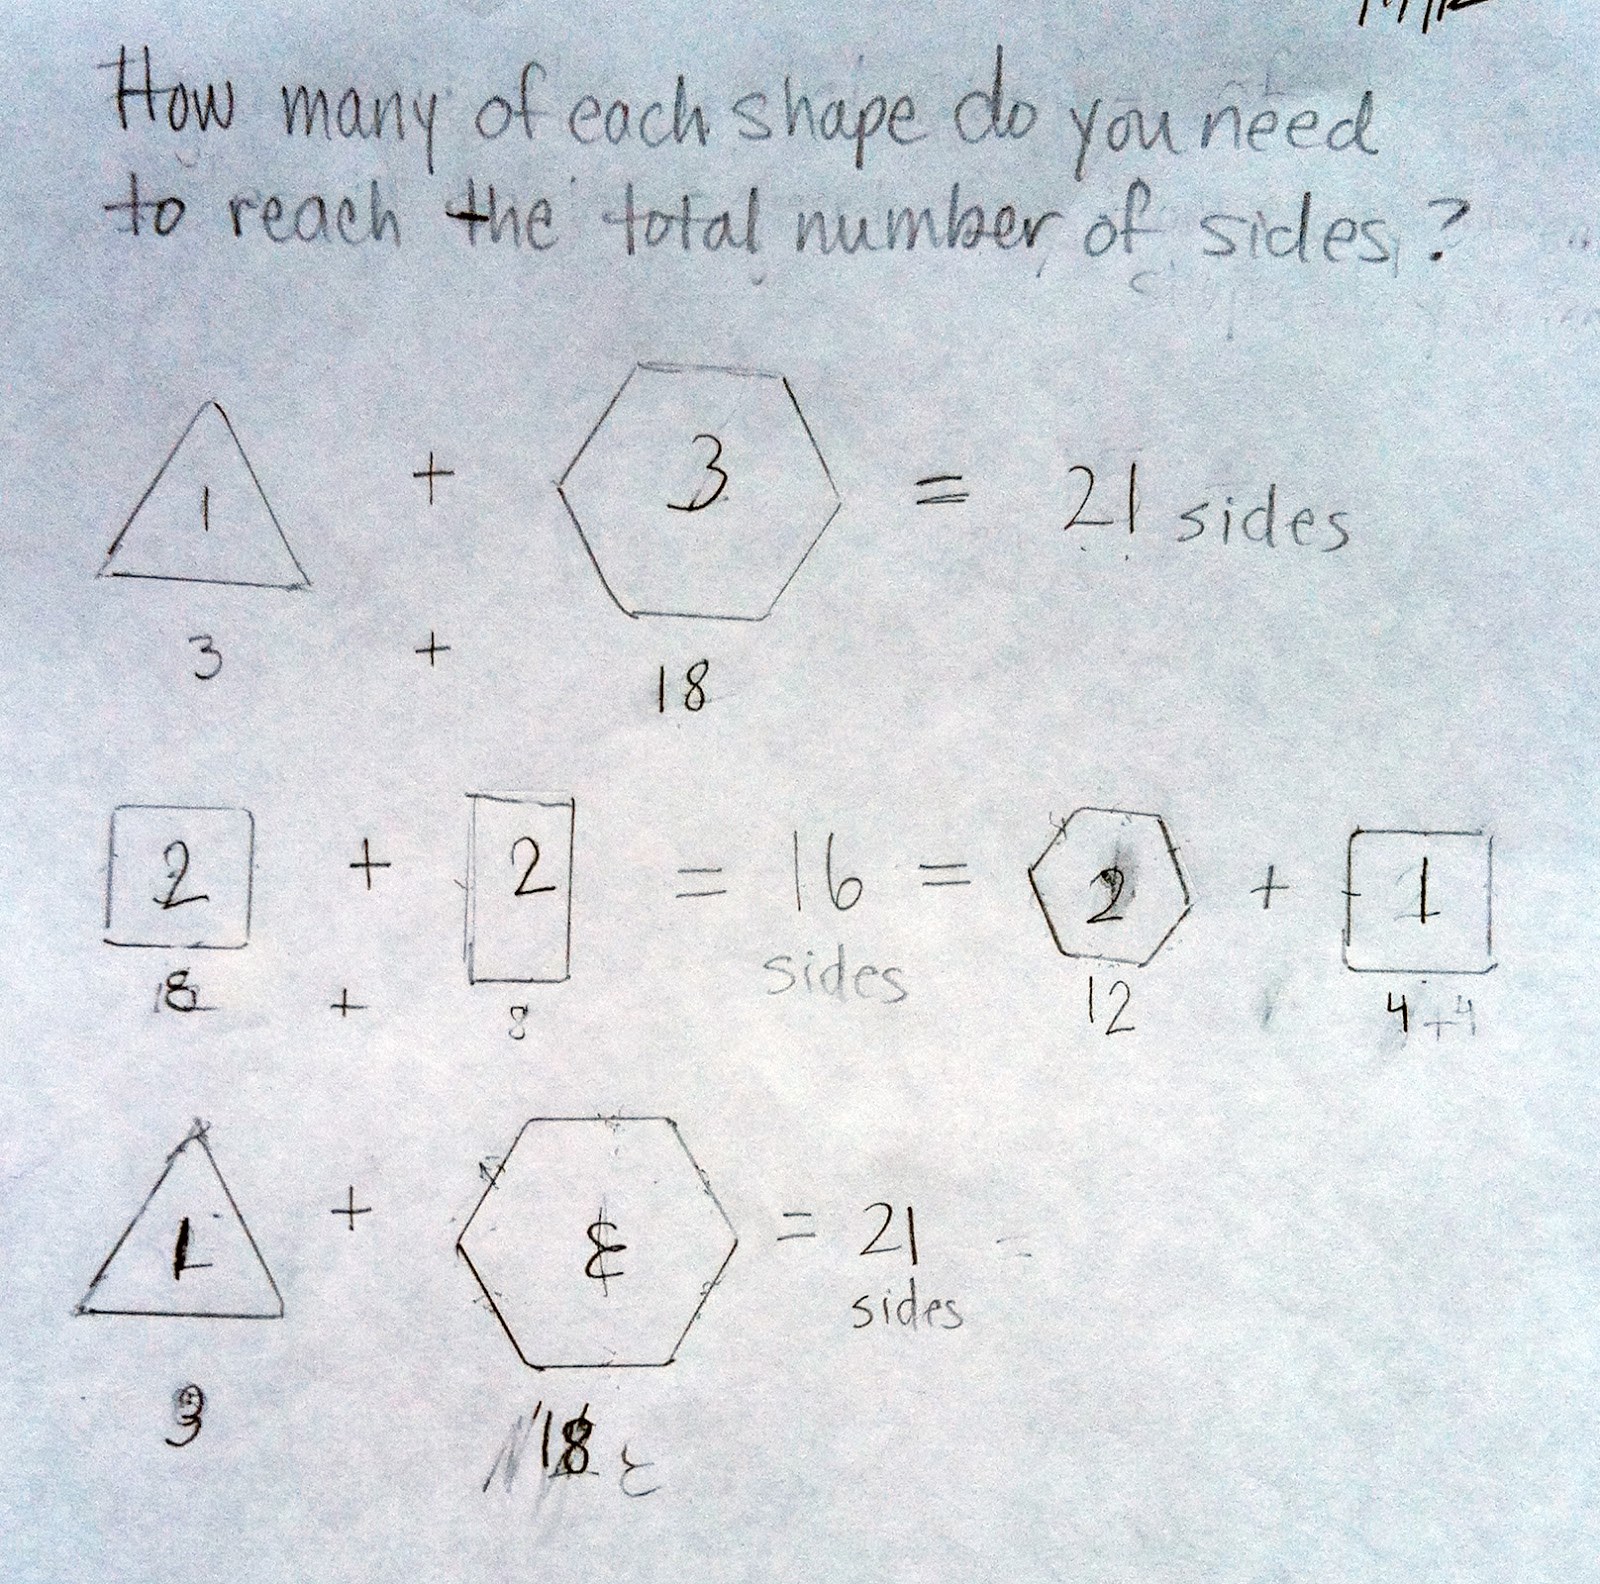 How many of each shape do you need
to reach the total number of sides?
1 + 3 = 21 sides
3 + 18
2 + 2 = 16 = 2 + 1
sides
8 + 8 12 4 + 4
1 + = 21 =
sides
3 18